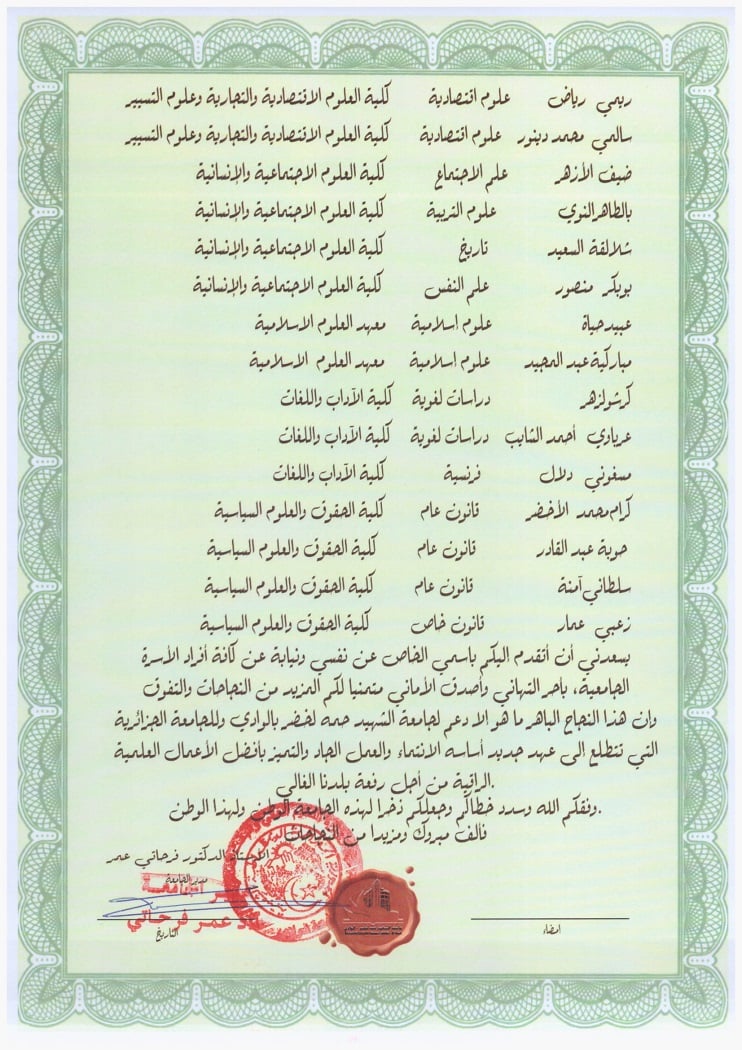 ريمي رياض علوم اقتصادية كلية العلوم الاقتصادية والتجارية وعلوم التسيير
سالمي محمد دينور علوم اقتصادية كلية العلوم الاقتصادية والتجارية وعلوم التسيير
ضيف الأزهر علم الاجتماع كلية العلوم الاجتماعية والإنسانية
بالطاهرالنوي علوم التربية كلية العلوم الاجتماعية والإنسانية
شلالقة السعيد تاريخ كلية العلوم الاجتماعية والإنسانية
بوبكر منصور علم النفس كلية العلوم الاجتماعية والإنسانية
عبيدحياة علوم إسلامية معهد العلوم الاسلامية
مباركية عبد المجيد علوم إسلامية معهد العلوم الاسلامية
كرشولزهر دراسات لغوية كلية الآداب واللغات
عرباوي أحمد الشايب دراسات لغوية كلية الآداب واللغات
مسغوني دلال فرنسية كلية الآداب واللغات
كرام محمد الأخضر قانون عام كلية الحقوق والعلوم السياسية
حوبة عبد القادر قانون عام كلية الحقوق والعلوم السياسية
سلطاني آمنة قانون عام كلية الحقوق والعلوم السياسية
زعبي عمار قانون خاص كلية الحقوق والعلوم السياسية
يسعدني أن أتقدم اليكم باسمي الخاص عن نفسي ونيابة عن كافة أفراد الأسرة
الجامعية، بأحر التهاني وأصدق الأماني متمنيا لكم المزيد من النجاحات والتفوق
وإن هذا النجاح الباهر ما هو الا دعم لجامعة الشهيد حمه لخضر بالوادي وللجامعة الجزائرية
التي تتطلع إلى عهد جديد أساسه الانتماء والعمل الجاد والتميز بأفضل الأعمال العلمية
الراقية من أجل رفعة بلدنا الغالي.
وفقكم الله وسدد خطاكم وجعلكم ذخرا لهذه الجامعة الوطن ولهذا الوطن.
فألف مبروك ومزيدا من النجاحات
الاستاذ الدكتور فرحاتي عمر
مدير الجامعة
عمر فرحاتي
التاريخ
امضاء